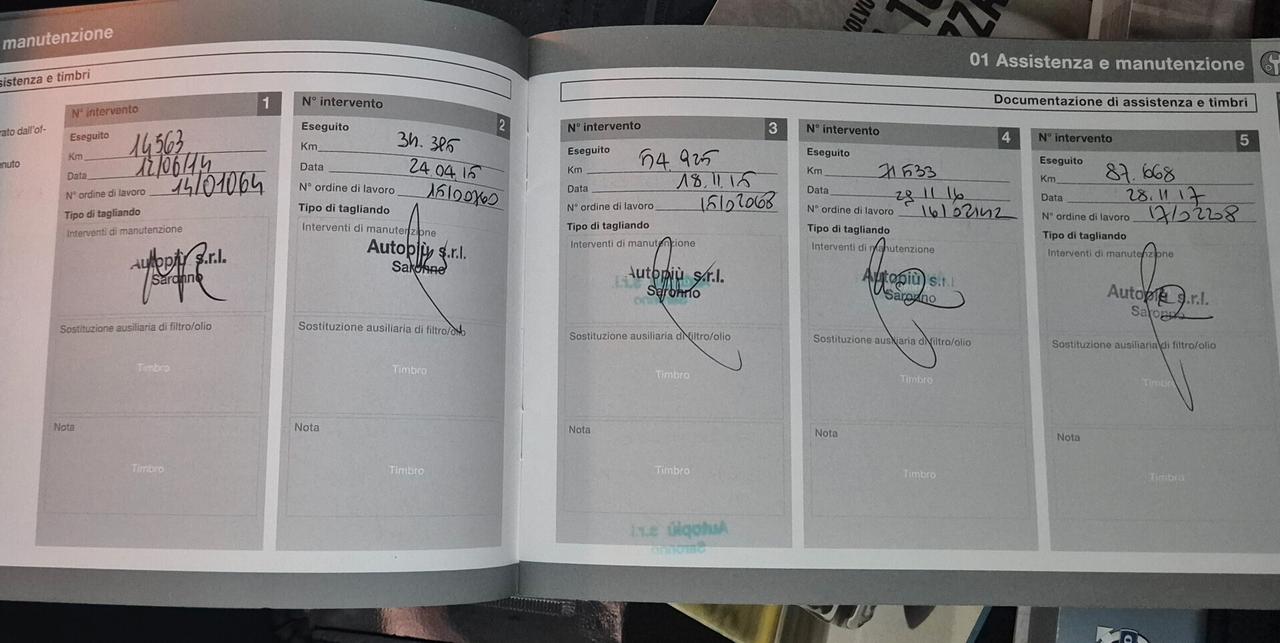 manutenzione
sistenza e timbri
rato dall'of-
nuto
N° intervento 1
Eseguito
Km 14563
Data 12/06/14
N° ordine di lavoro 14/01064
Tipo di tagliando
Interventi di manutenzione
Autopiù s.r.l.
Saronno
Sostituzione ausiliaria di filtro/olio
Timbro
Nota
Timbro
N° intervento 2
Eseguito
Km 34.385
Data 24.04.15
N° ordine di lavoro 15/00760
Tipo di tagliando
Interventi di manutenzione
Autopiù s.r.l.
Saronno
Sostituzione ausiliaria di filtro/olio
Timbro
Nota
Timbro
VOLVO
01 Assistenza e manutenzione
Documentazione di assistenza e timbri
N° intervento 3
Eseguito
Km 54.925
Data 18.11.15
N° ordine di lavoro 15/02068
Tipo di tagliando
Interventi di manutenzione
Autopiù s.r.l.
Saronno
Sostituzione ausiliaria di filtro/olio
Timbro
Nota
Timbro
Autopiù s.r.l.
Saronno
N° intervento 4
Eseguito
Km 71533
Data 23 11 16
N° ordine di lavoro 16/02142
Tipo di tagliando
Interventi di manutenzione
Autopiù s.r.l.
Saronno
Sostituzione ausiliaria di filtro/olio
Timbro
Nota
Timbro
N° intervento 5
Eseguito
Km 87.668
Data 28.11.17
N° ordine di lavoro 17/02208
Tipo di tagliando
Interventi di manutenzione
Autopiù s.r.l.
Saronno
Sostituzione ausiliaria di filtro/olio
Timbro
Nota
Timbro